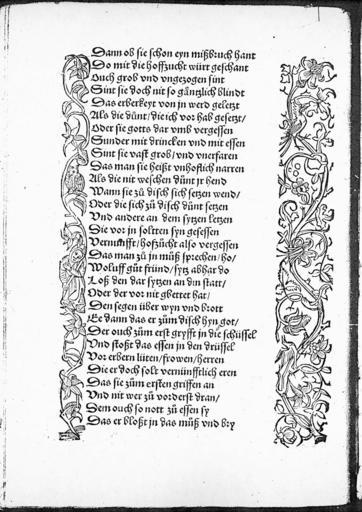 Dann ob sie schon eyn mißbruch hant
Do mit die hoffzucht würt geschant
Ouch grob vnd vngezogen sint
Sint sie doch nit so gäntzlich blindt
Das erberkeyt von jn werd geletzt
Als die dünt / die ich vor hab gesetzt /
Oder sie gotts dar vmb vergessen
Sunder mit drincken vnd mit essen
Sint sie vast grob / vnd vnerfaren
Das man sie heißt vnhoflich narren
Als die nit weschen dünt jr hend
Wann sie zů disch sich setzen wend /
Oder die sich zů disch dünt setzen
Vnd andere an dem sytzen letzen
Die vor jn soltten syn gesessen
Vernunfft / hofzücht also vergessen
Das man zů jn můß sprechen / ho /
Woluff gůt fründ / sytz abhar do
Loß den dar sytzen an din statt /
Oder der vor nit gbettet hat /
Den segen über wyn vnd brott
Ee dann das er zům disch hyn got /
Der ouch zům erst gryfft in die schüssel
Vnd stoßt das essen in den drüssel
Vor erbern lüten / frowen / herren
Die er doch solt vernünfftlich eren
Das sie zům ersten griffen an
Vnd nit wer zů vorderst dran /
Dem ouch so nott zů essen sy
Das er bloßt jn das můß vnd bry